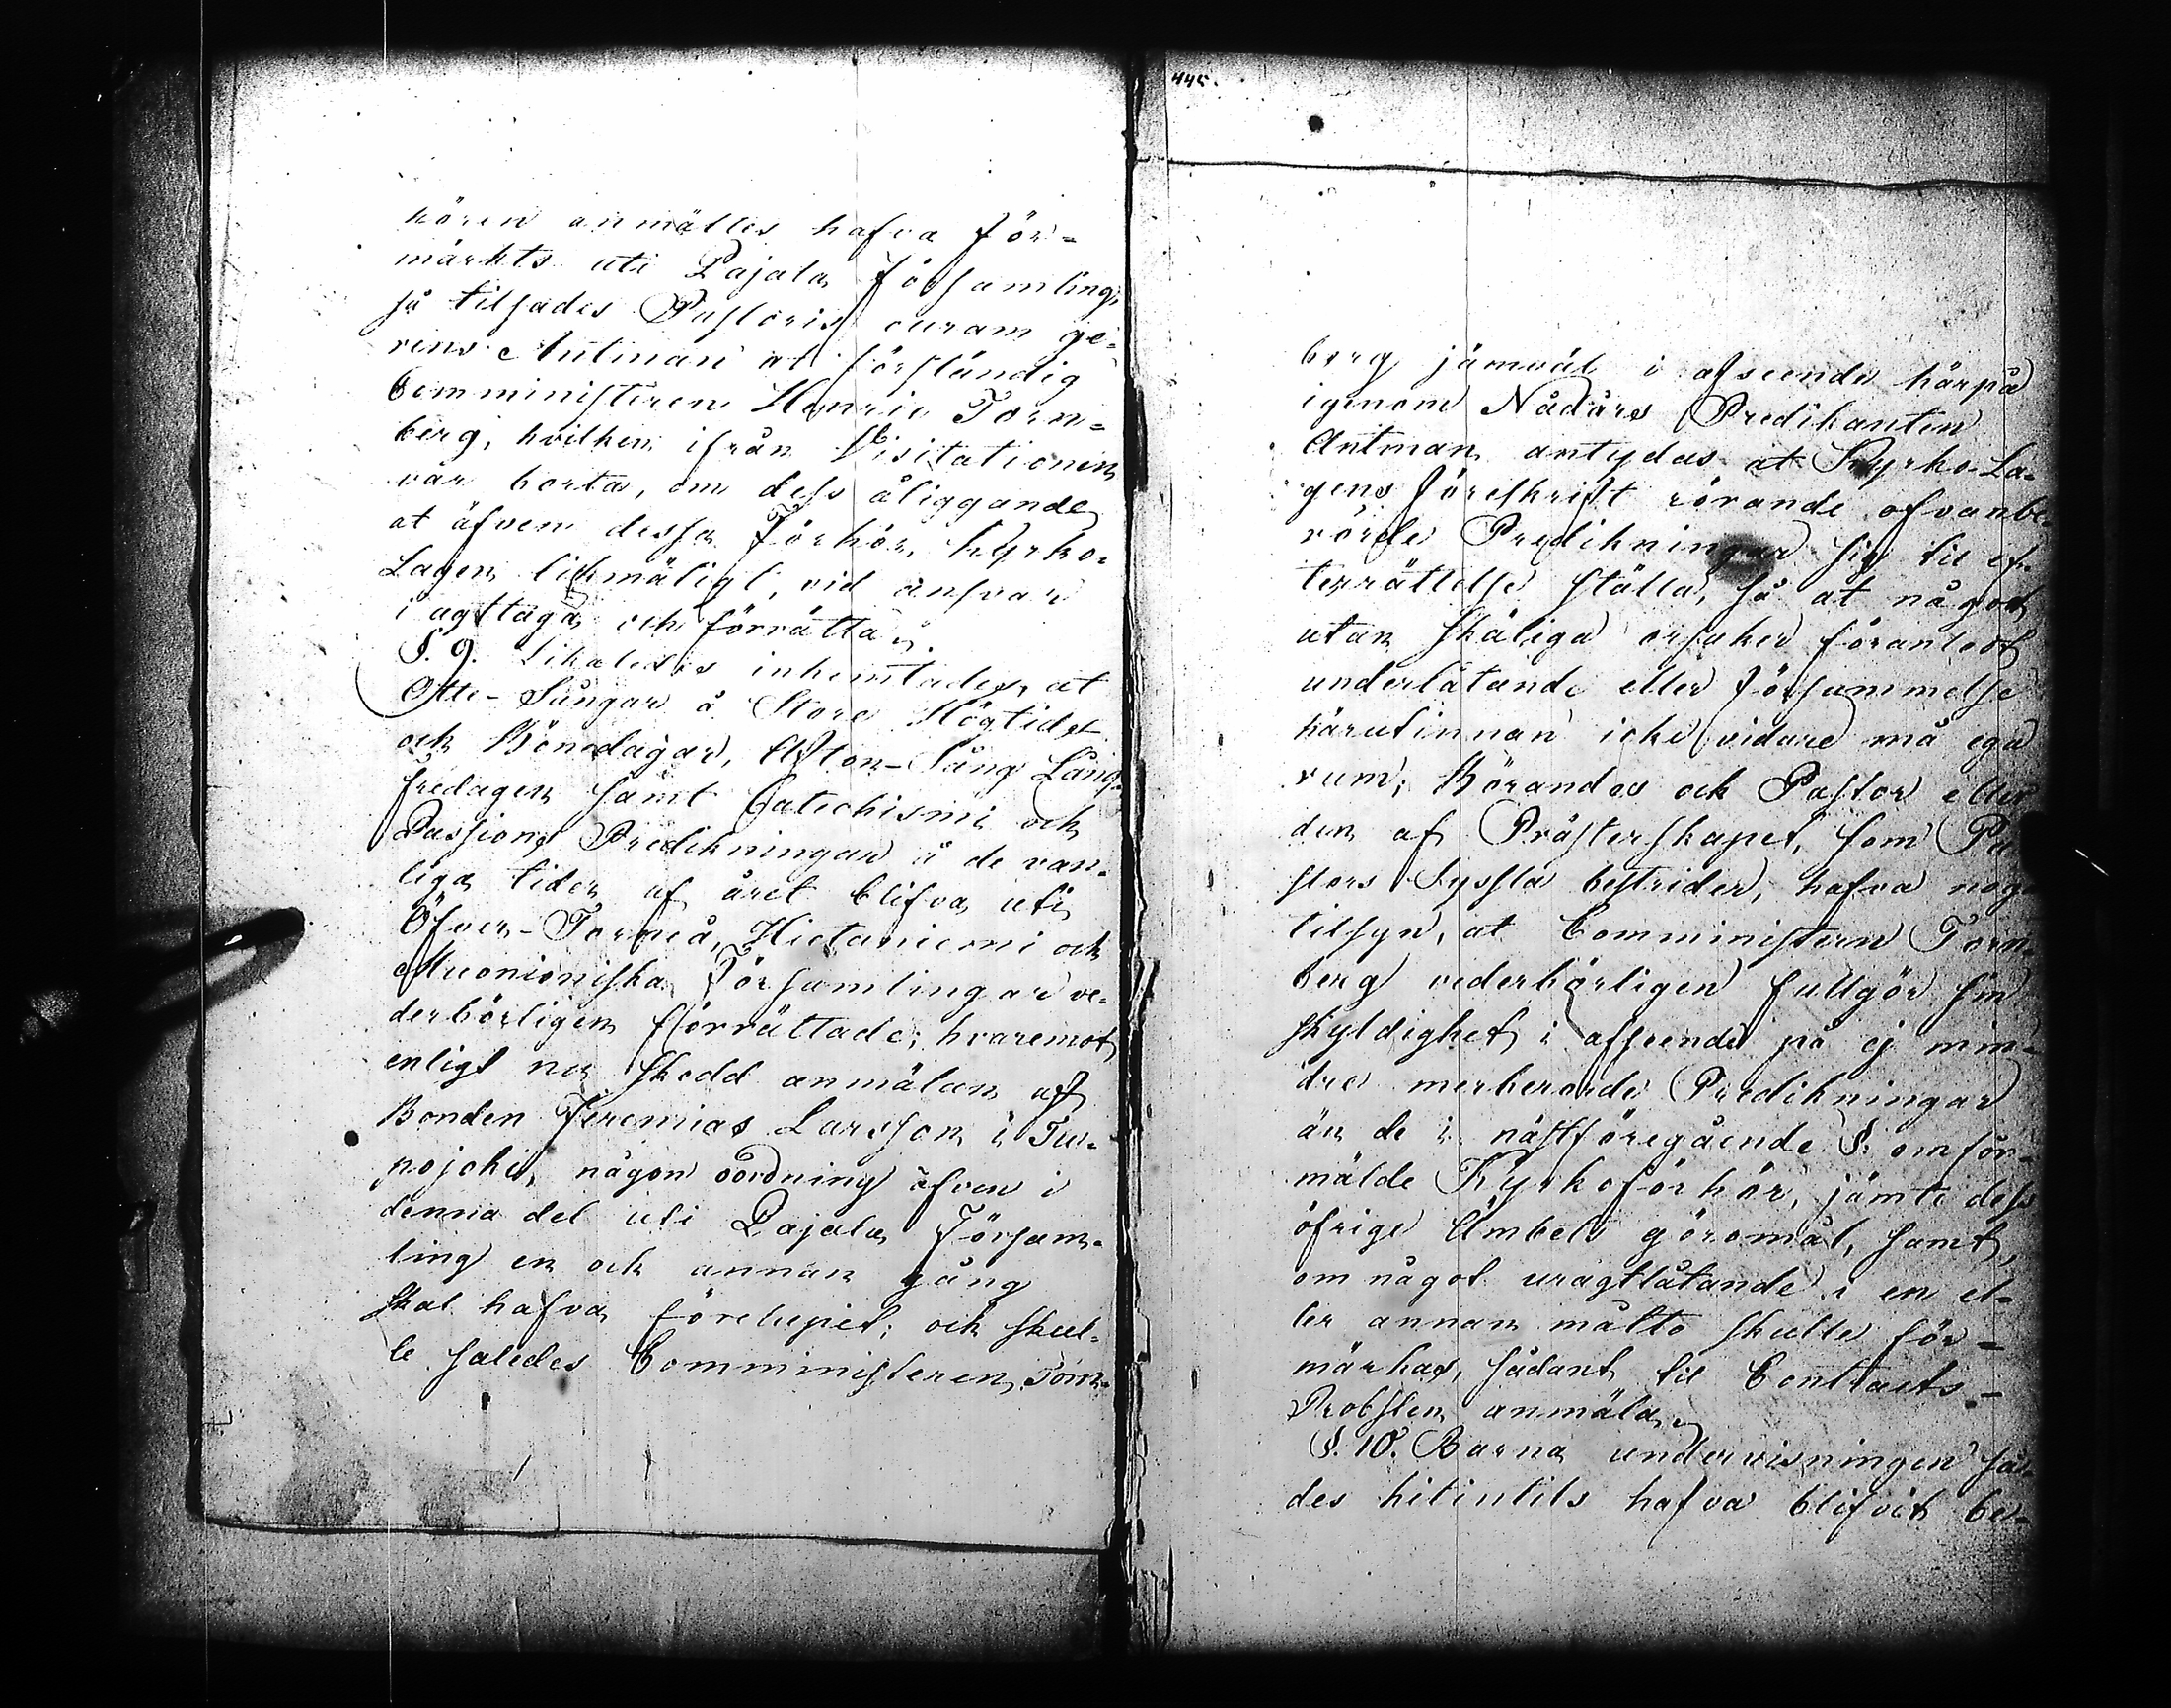 hören anmältes hafva för-
märkts uti Pajala församling,
så tilsades Pastoris curam ge-
rens Antman at förständig
Comministeren Henric Torn-
berg, hvilken ifrån Visitationen
var borta, om dess åliggande
at äfven dessa Förhör, Kyrko-
Lagen likmäligt, vid answar
i agttaga och förrätta.
§. 9. Likaledes inhemtades, at
Otte-Sångar å Store Högtider
och Bönedagar, Afton-Sång Lång-
fredagen samt Catechismi och
Passions Predikningar å de van-
liga tider af året blifva uti
Öfver-Torneå, Hietaniemi och
Muonioniska Församlingar ve-
derbörligen förrättade; hvaremot
enligt nu skedd anmälan af
Bonden Jeremias Larsson i Tur-
pojoki, någon oordning äfven i
denna del uti Pajala Försam-
ling en och annan gång
skal hafva förelupit; och skul-
le således Comministeren Torn-
445.
berg jämväl i afseende härpå
igenom Nådårs Predikanten
Antman antydas at Kyrko-La-
gens föreskrift rörande ofvanbe-
rörde Predikningar sig til ef-
terrättelse ställa, så at något
utan skäliga orsaker föranledt
underlåtande eller försummelse
härutinnan icke vidare må ega
rum; Börandes ock Pastor eller
den af Prästerskapet, som Pa-
stors Syssla bestrider, hafva noga
tilsyn, at Comministern Torn-
berg vederbörligen fullgör sin
skyldighet i afseende på ej min-
dre merberörde Predikningar
än de i nästföregående §. omför-
mälde Kyrkoförhör, jämte dess
öfrige Ämbets göromål, samt,
om något uragtlåtande i en el-
ler annan måtto skulle för-
märkas, sådant til Contracts-
Probsten anmäla.
§. 10. Barna undervisningen så-
des hitintils hafva blifvit be-